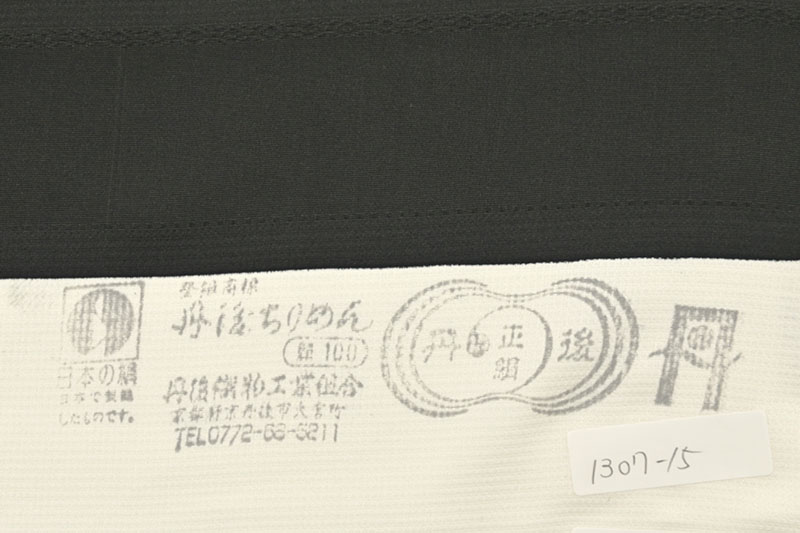 日本の絹
日本で製織
したものです。
登録商標
丹後ちりめん
絹100
丹後織物工業組合
京都府京丹後市大宮町
TEL0772-68-5211
丹後
正絹
丹
1307-15